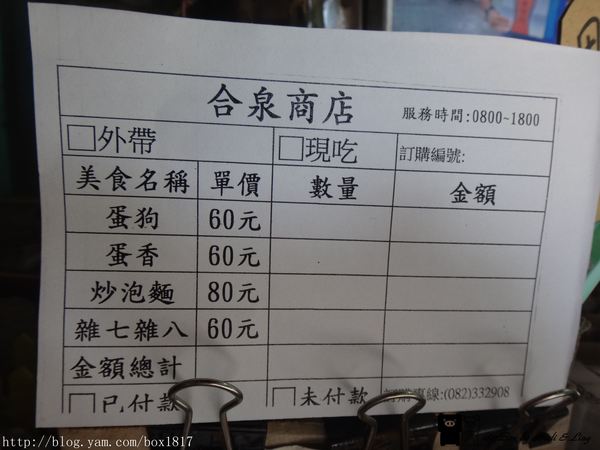 合泉商店 服務時間:0800~1800
□外帶 □現吃 訂購編號:
美食名稱 單價 數量 金額
蛋狗 60元
蛋香 60元
炒泡麵 80元
雜七雜八 60元
金額總計
□已付款 □未付款 訂購專線:(082)332908
http://blog.yam.com/box1817